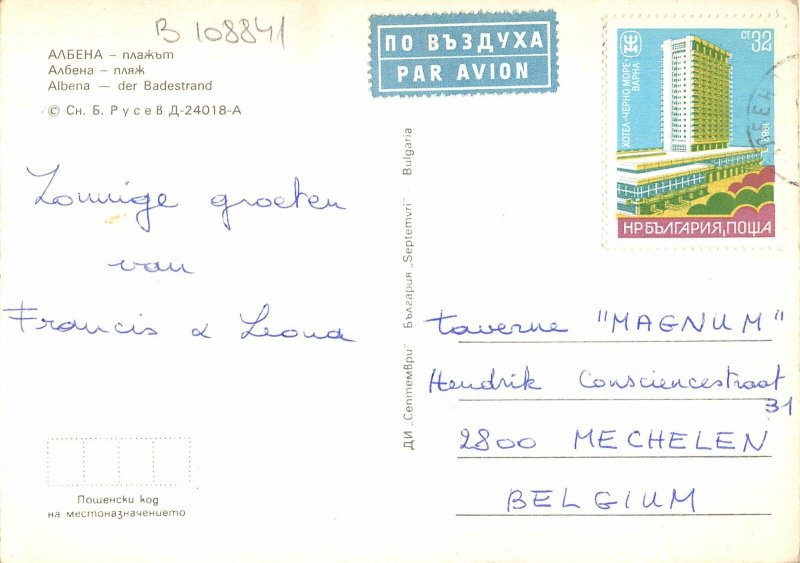 B 108841
АЛБЕНА – плажът
Албена – пляж
Albena — der Badestrand
© Сн. Б. Русев Д-24018-А
ПО ВЪЗДУХА
PAR AVION
ст 32
ХОТЕЛ-ЧЕРНО МОРЕ-
ВАРНА
1982
НР БЪЛГАРИЯ, ПОЩА
Zonnige groeten
van
Francis & Leona
ДИ „Септември" България „Septemvri" Bulgaria
taverne "MAGNUM"
Hendrik Consciencestraat
31
2800 MECHELEN
BELGIUM
Пощенски код
на местоназначението